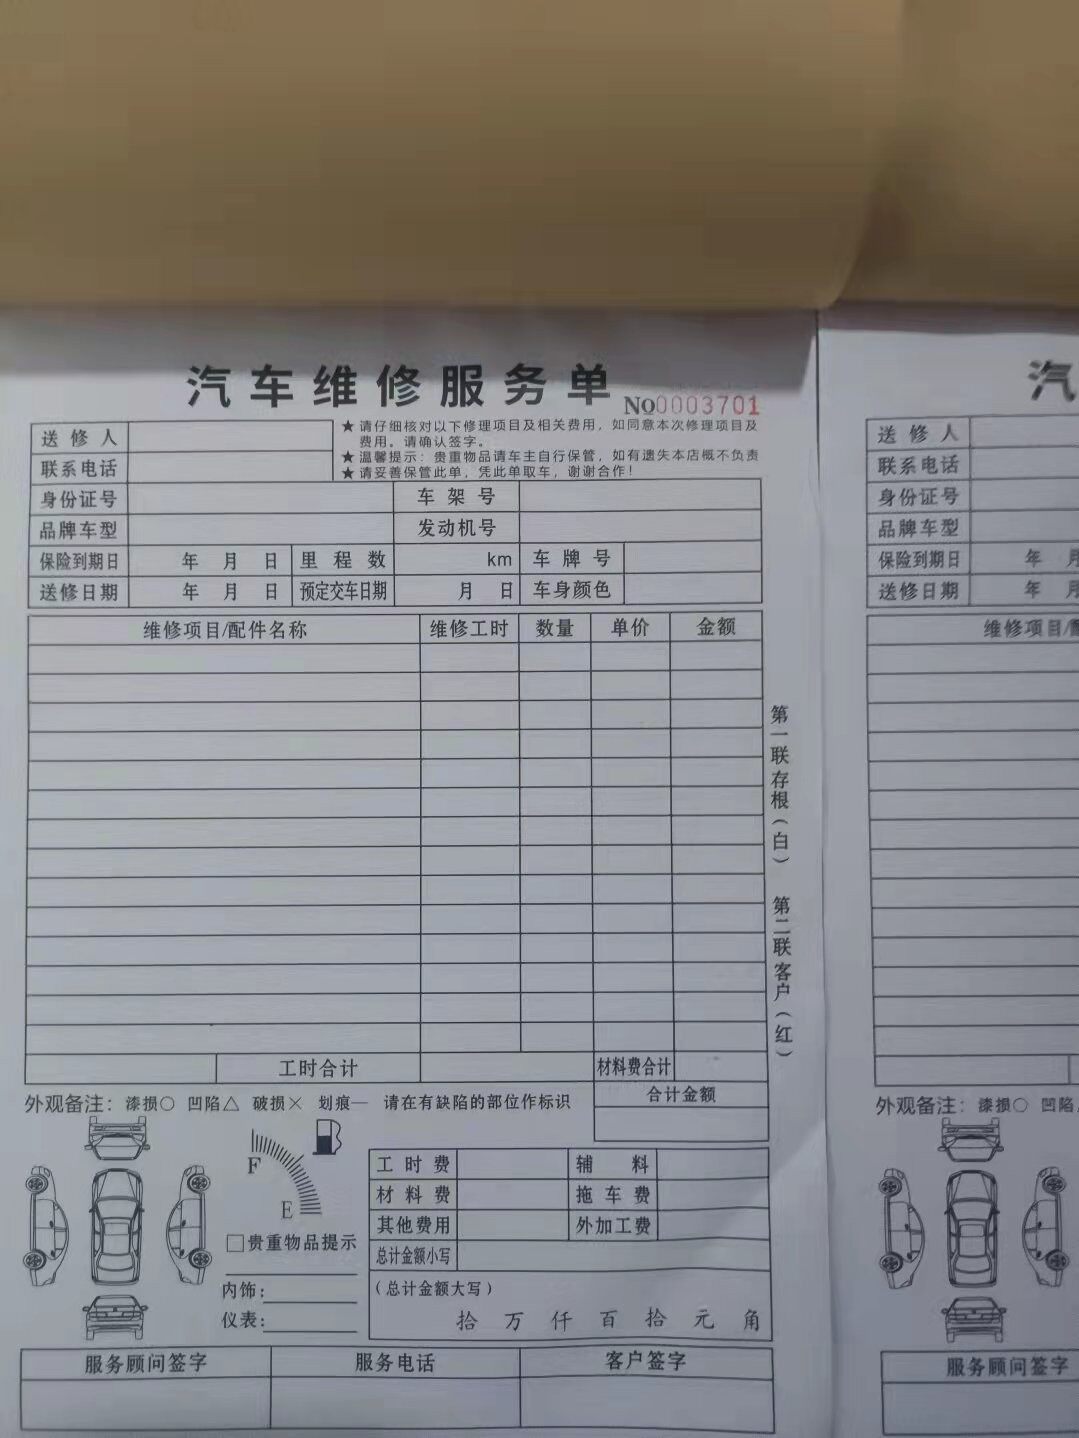 汽车维修服务单
NO0003701
送修人
★请仔细核对以下修理项目及相关费用，如同意本次修理项目及
费用。请确认签字。
★温馨提示：贵重物品请车主自行保管，如有遗失本店概不负责
★请妥善保管此单，凭此单取车，谢谢合作！
联系电话
身份证号 车架号
品牌车型 发动机号
保险到期日 年 月 日 里程数 km 车牌号
送修日期 年 月 日 预定交车日期 月 日 车身颜色
维修项目/配件名称 维修工时 数量 单价 金额
第一联存根（白） 第二联客户（红）
工时合计 材料费合计
合计金额
外观备注：漆损○ 凹陷△ 破损× 划痕— 请在有缺陷的部位作标识
F
E
□贵重物品提示
内饰：
仪表：
工时费 辅料
材料费 拖车费
其他费用 外加工费
总计金额小写
（总计金额大写）
拾 万 仟 百 拾 元 角
服务顾问签字 服务电话 客户签字
汽
送修人
联系电话
身份证号
品牌车型
保险到期日 年 月
送修日期 年 月
维修项目/配
外观备注：漆损○ 凹陷
服务顾问签字